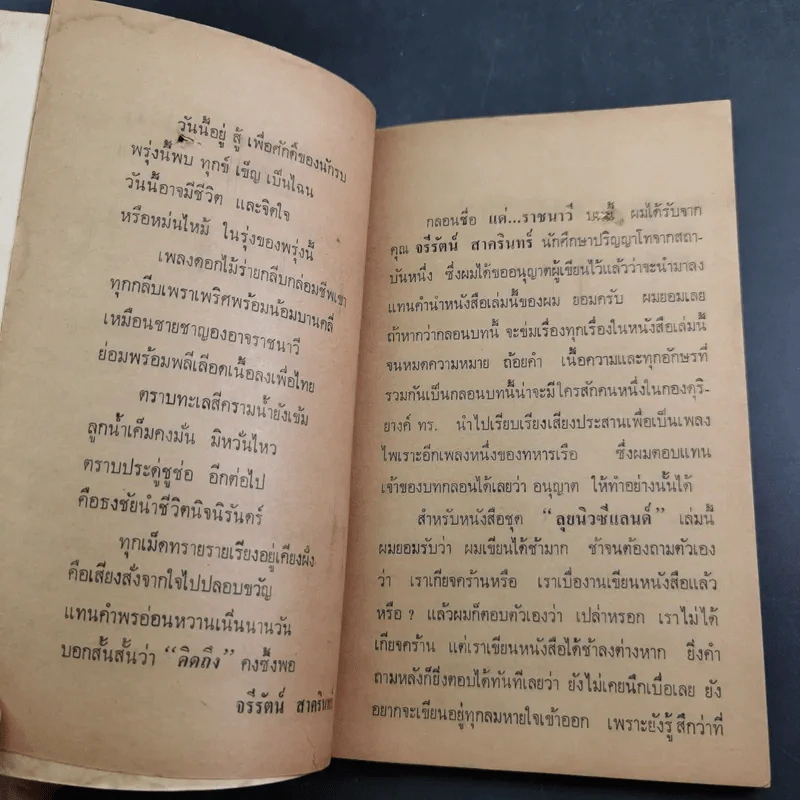 วันนี้อยู่ สู้ เพื่อศักดิ์ของนักรบ
พรุ่งนี้พบ ทุกข์ เข็ญ เป็นไฉน
วันนี้อาจมีชีวิต และจิตใจ
หรือหม่นไหม้ ในรุ่งของพรุ่งนี้
เพลงดอกไม้ร่ายกลีบกล่อมชีพเขา
ทุกกลีบเพราเพริศพร้อมน้อมบานคลี่
เหมือนชายชาญองอาจราชนาวี
ย่อมพร้อมพลีเลือดเนื้อลงเพื่อไทย
ตราบทะเลสีครามน้ำยังเข้ม
ลูกน้ำเค็มคงมั่น มิหวั่นไหว
ตราบประดู่ชูช่อ อีกต่อไป
คือธงชัยนำชีวิตนิจนิรันดร์
ทุกเม็ดทรายรายเรียงอยู่เคียงฝั่ง
คือเสียงสั่งจากใจไปปลอบขวัญ
แทนคำพรอ่อนหวานเนิ่นนานวัน
บอกสั้นสั้นว่า “คิดถึง” คงซึ้งพอ
จรีรัตน์ สาครินทร์
กลอนชื่อ แด่...ราชนาวี บทนี้ ผมได้รับจาก
คุณ จรีรัตน์ สาครินทร์ นักศึกษาปริญญาโทจากสถา-
บันหนึ่ง ซึ่งผมได้ขออนุญาตผู้เขียนไว้แล้วว่าจะนำมาลง
แทนคำนำหนังสือเล่มนี้ของผม ยอมครับ ผมยอมเลย
ถ้าหากว่ากลอนบทนี้ จะข่มเรื่องทุกเรื่องในหนังสือเล่มนี้
จนหมดความหมาย ถ้อยคำ เนื้อความและทุกอักษรที่
รวมกันเป็นกลอนบทนี้น่าจะมีใครสักคนหนึ่งในกองดุริ-
ยางค์ ทร. นำไปเรียบเรียงเสียงประสานเพื่อเป็นเพลง
ไพเราะอีกเพลงหนึ่งของทหารเรือ ซึ่งผมตอบแทน
เจ้าของบทกลอนได้เลยว่า อนุญาต ให้ทำอย่างนั้นได้
สำหรับหนังสือชุด “ลุยนิวซีแลนด์” เล่มนี้
ผมยอมรับว่า ผมเขียนได้ช้ามาก ช้าจนต้องถามตัวเอง
ว่า เราเกียจคร้านหรือ เราเบื่องานเขียนหนังสือแล้ว
หรือ ? แล้วผมก็ตอบตัวเองว่า เปล่าหรอก เราไม่ได้
เกียจคร้าน แต่เราเขียนหนังสือได้ช้าลงต่างหาก ยิ่งคำ
ถามหลังก็ยิ่งตอบได้ทันทีเลยว่า ยังไม่เคยนึกเบื่อเลย ยัง
อยากจะเขียนอยู่ทุกลมหายใจเข้าออก เพราะยังรู้สึกว่าที่